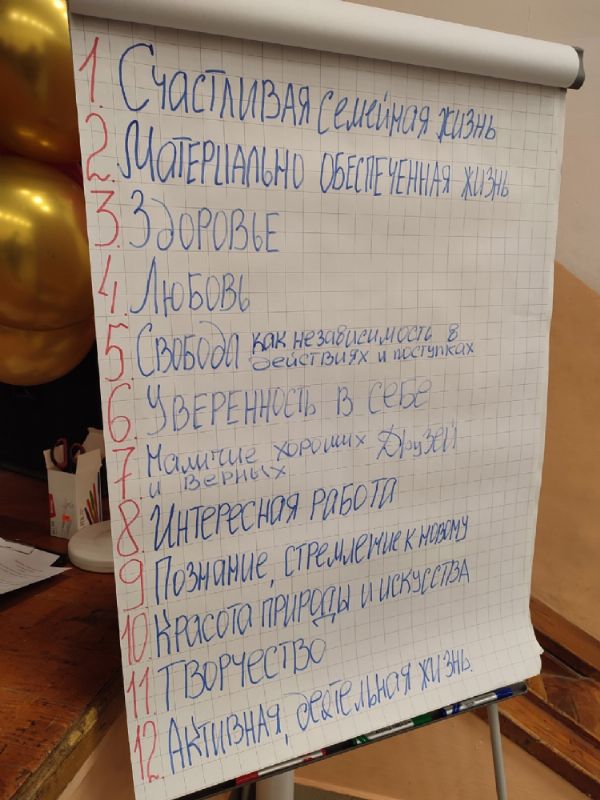 1. Счастливая семейная жизнь
2. Материально обеспеченная жизнь
3. Здоровье
4. Любовь
5. Свобода как независимость в
действиях и поступках
6. Уверенность в себе
7. Наличие хороших Друзей
и верных
8. Интересная работа
9. Познание, стремление к новому
10. Красота природы и искусства
11. Творчество
12. Активная, деятельная жизнь.